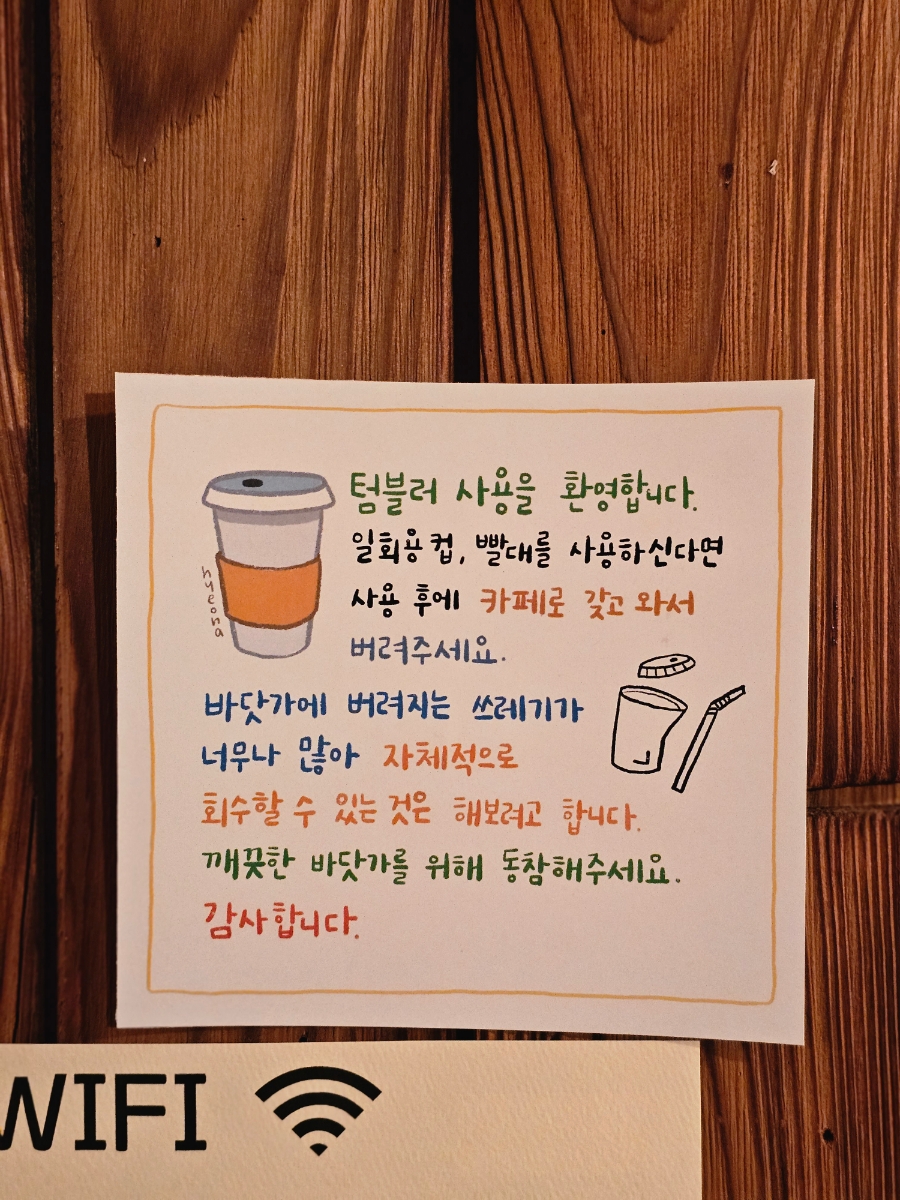 텀블러 사용을 환영합니다.
일회용 컵, 빨대를 사용하신다면
사용 후에 카페로 갖고 와서
버려주세요.
hyeona
바닷가에 버려지는 쓰레기가
너무나 많아 자체적으로
회수할 수 있는 것은 해보려고 합니다.
깨끗한 바닷가를 위해 동참해주세요.
감사합니다.
WIFI